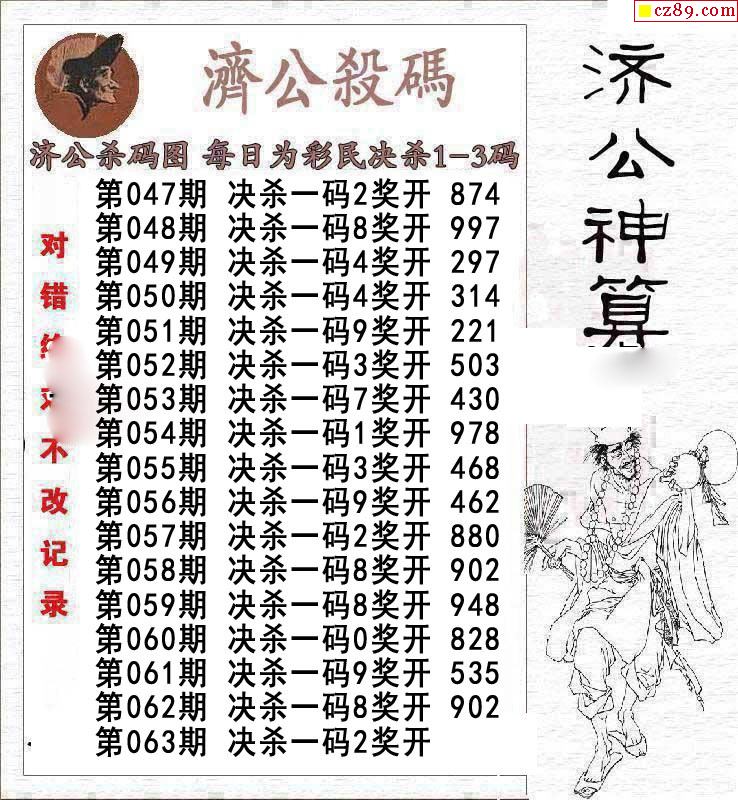 cz89.com
濟公殺碼
济公杀码图 每日为彩民决杀1-3码
第047期 决杀一码2奖开 874
第048期 决杀一码8奖开 997
第049期 决杀一码4奖开 297
第050期 决杀一码4奖开 314
第051期 决杀一码9奖开 221
第052期 决杀一码3奖开 503
第053期 决杀一码7奖开 430
第054期 决杀一码1奖开 978
第055期 决杀一码3奖开 468
第056期 决杀一码9奖开 462
第057期 决杀一码2奖开 880
第058期 决杀一码8奖开 902
第059期 决杀一码8奖开 948
第060期 决杀一码0奖开 828
第061期 决杀一码9奖开 535
第062期 决杀一码8奖开 902
第063期 决杀一码2奖开
对错不改记录
济公神算